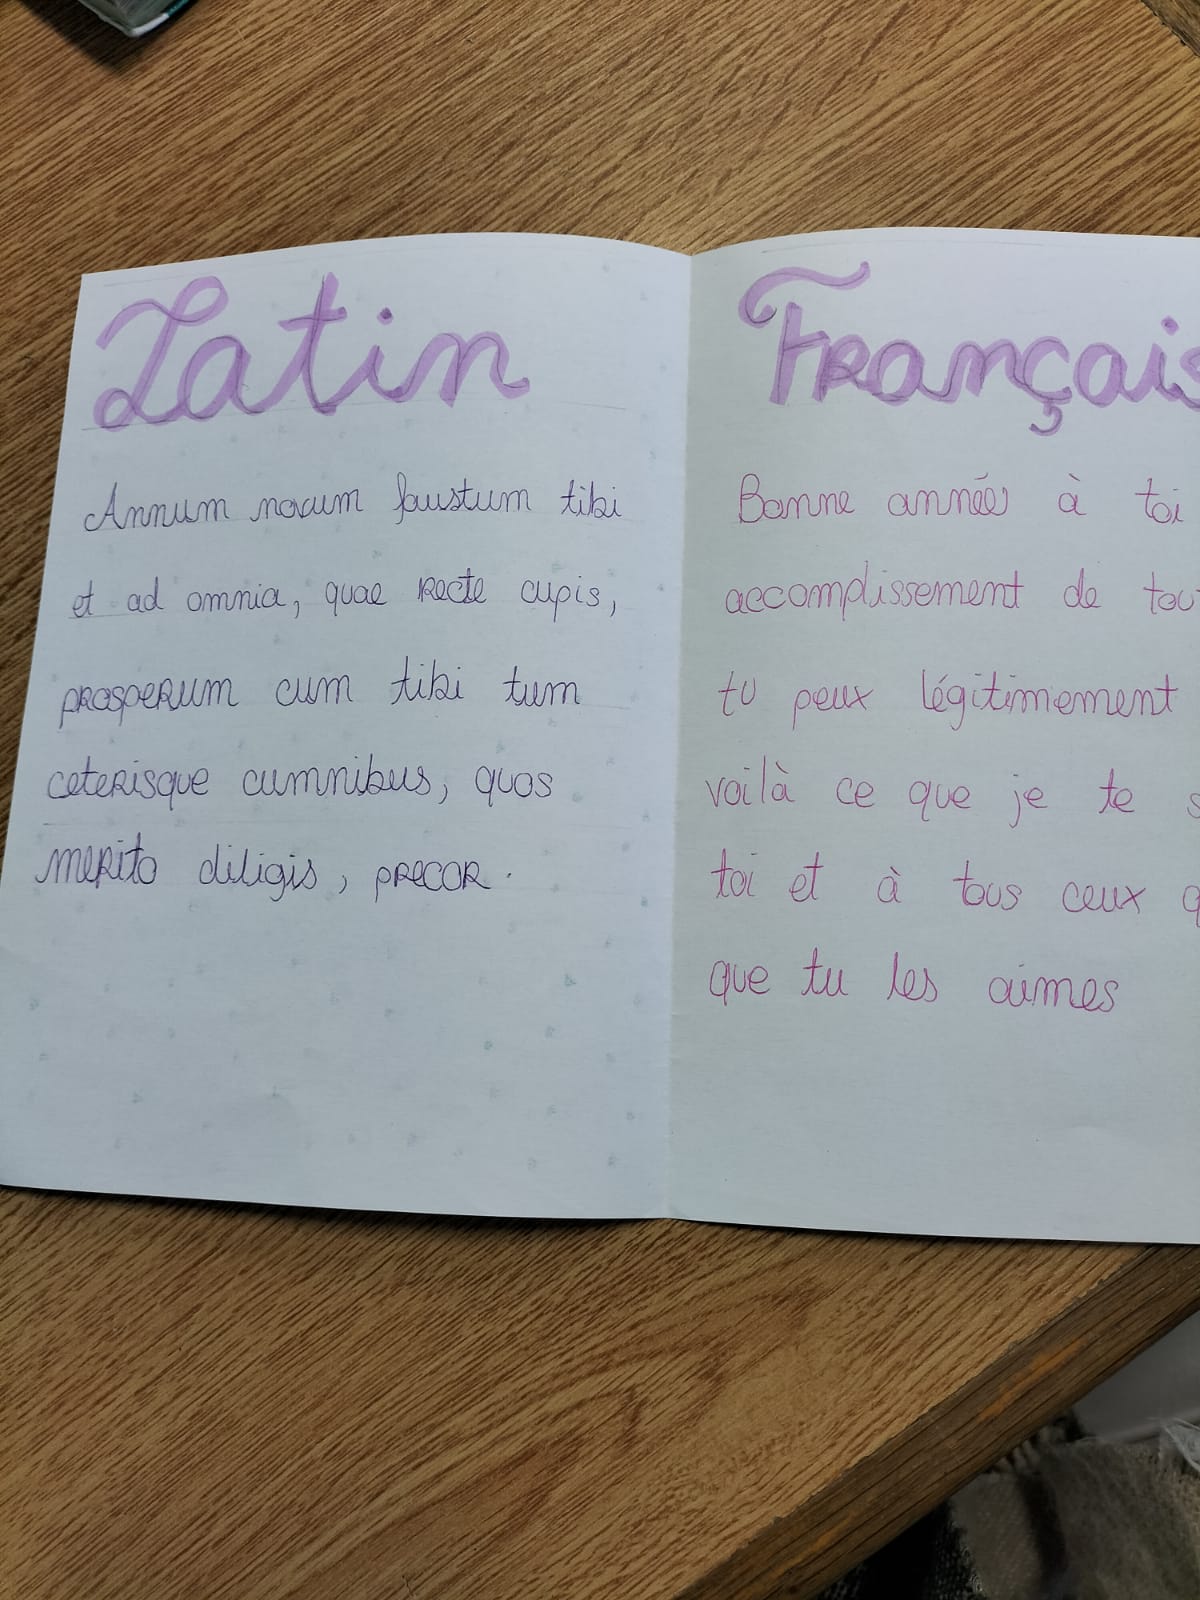 Latin
Annum novum faustum tibi
et ad omnia, quae recte cupis,
prosperum cum tibi tum
ceterisque cumnibus, quos
merito diligis, precor.
Français
Bonne année à toi
accomplissement de tout
tu peux légitimement
voilà ce que je te s
toi et à tous ceux q
que tu les aimes